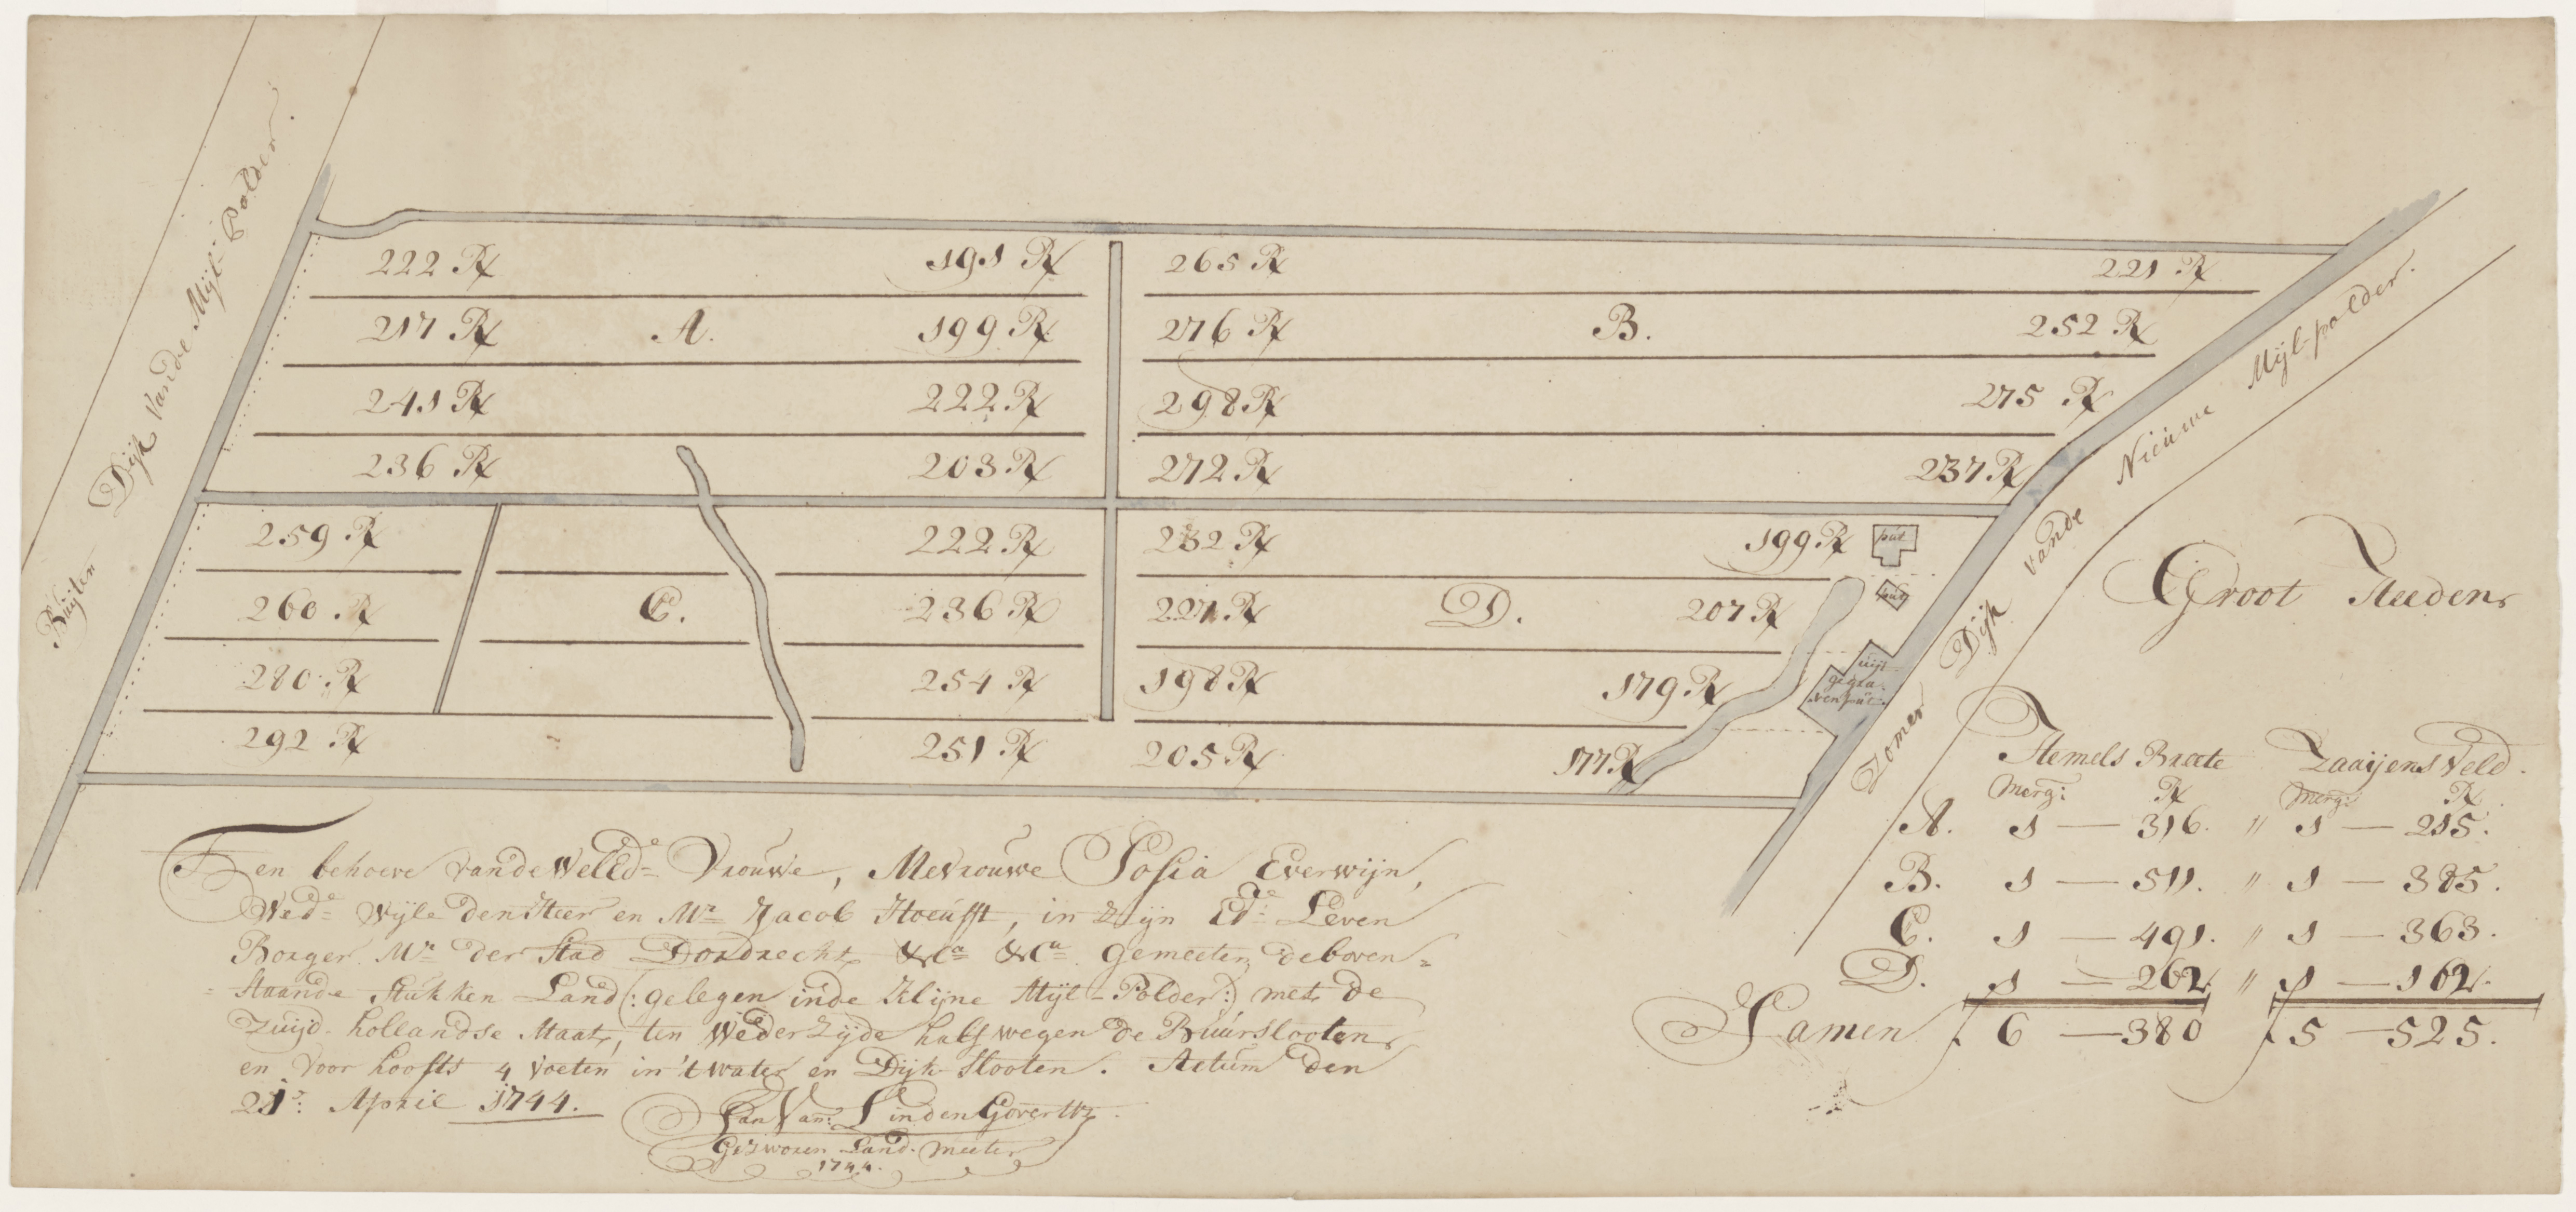 Buijten Dijk vande Mijl-Polder.
222 R 191 R 265 R 221 R
217 R A. 199 R 276 R B. 252 R
241 R 222 R 298 R 275 R
236 R 203 R 272 R 237 R
259 R 222 R 232 R 199 R put
260 R C. 236 R 221 R D. 207 R put
280 R 254 R 198 R 179 R
uijt
gegra-
ven put
292 R 251 R 205 R 177 R
Zomer Dijk vande Nieuwe Mijl-polder.
Groot
Hemels Breete Zaaijens Veld.
Merg: R Merg: R
A. 1 — 316. " 1 — 215.
B. 1 — 511. " 1 — 385.
C. 1 — 491. " 1 — 363.
D. 1 — 262. " 1 — 162.
Samen 6 — 380 5 — 525.
Ten behoeve vande WelEd.e Vrouwe, Mevrouwe Sofia Everwijn,
Wed.e Wijle den Heer en M.r Jacob Hoeufft, in Zijn Ed.e Leven
Borger M.r der Stad Dordrecht &c.a &c.a gemeeten deboven=
=staande Stukken Land (: gelegen inde Klijne Mijl-Polder :) met de
Zuijd-hollandse Maat, ten Wederzijde half wegen de Buurslooten
en voor hoofts 4 voeten in 't water en Dijk-slooten. Actum den
21.e April 1744.
Jan Van der Linden Govertsz
Gezworen Land-meeter
1744.